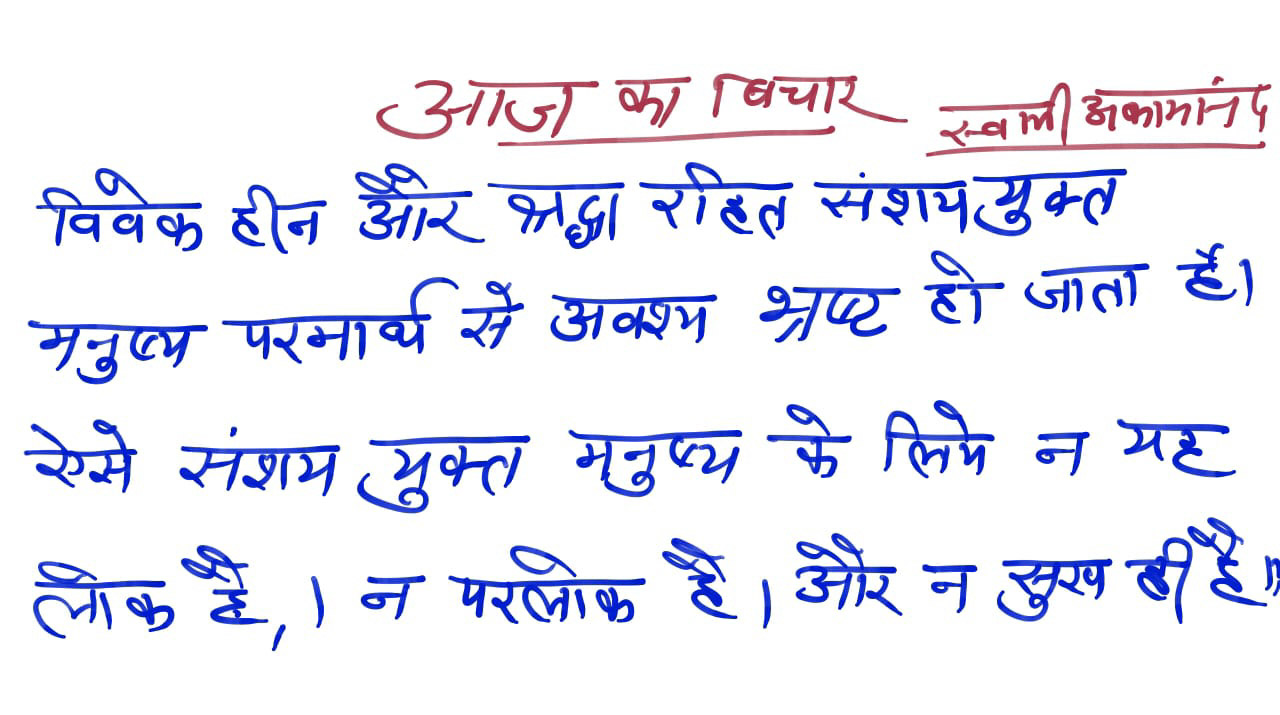 आज का विचार
स्वामी अकामानंद
विवेक हीन और श्रद्धा रहित संशययुक्त
मनुष्य परमार्थ से अवश्य भ्रष्ट हो जाता है।
ऐसे संशय युक्त मनुष्य के लिये न यह
लोक है,। न परलोक है। और न सुख ही है॥